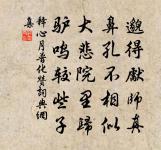 邈得獻師真
鼻孔不相似
大悲院里歸
驴鸣較些子
釋心月普化贊詞典網
集